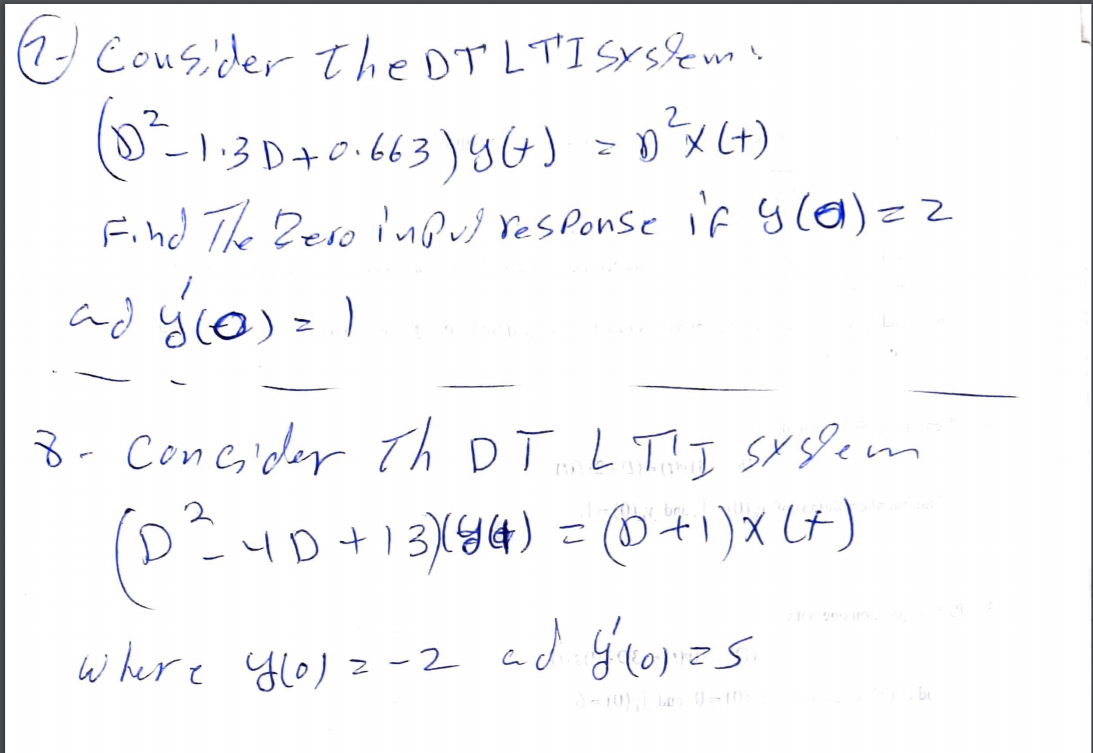 7-) Consider the DT LTI system:
(D²-1.3D+0.663)y(t) = D²x(t)
Find The Zero input response if y(0)=2
ad y'(0)=1
8- Consider Th DT LTI system
(D²-4D+13)(y(t) = (D+1)x(t)
where y(0)=-2 ad y'(0)=5